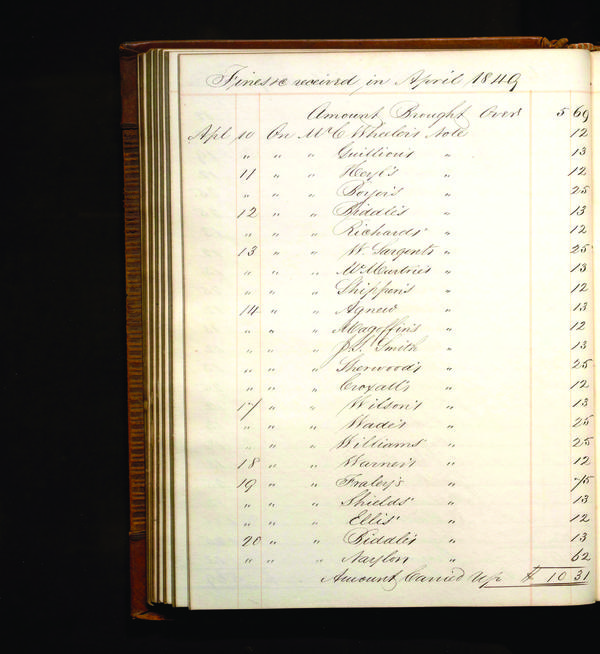 Fines &c received in April 1849
Amount Brought Over 5 69
Apl 10 On Mr C Whaler's Note 12
" " " Guillion's " 13
11 " " Hoyl's " 12
" " " Boyer's " 25
12 " " Biddle's " 13
" " " Richards' " 12
13 " " W. Sargents " 25
" " " McMurtrie's " 13
" " " Shippen's " 12
14 " " Agnew " 13
" " " Magoffin's " 12
" " " J. S. Smith " 13
" " " Sherwood's " 25
" " " Croxall's " 12
17 " " Wilson's " 13
" " " Wade's " 25
" " " Williams " 25
18 " " Warner's " 12
19 " " Fraley's " 75
" " " Shields' " 13
" " " Ellis' " 12
20 " " Biddle's " 13
" " " Naylor " 62
Amount Carried Up $ 10 31